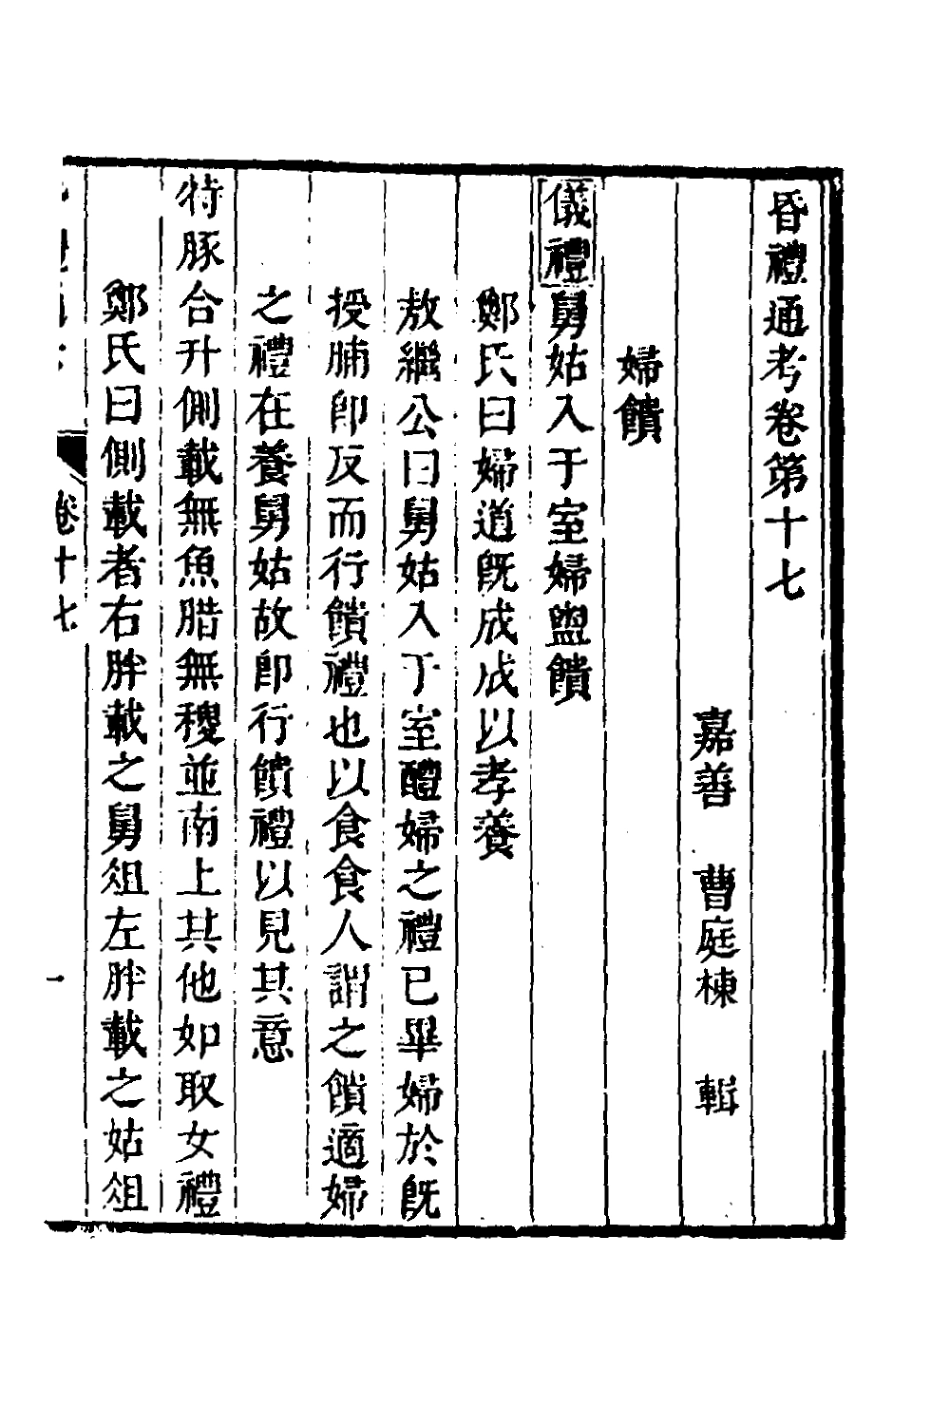 昏禮通考卷第十七
嘉善 曹庭棟 輯
婦饋
儀禮舅姑入于室婦盥饋
鄭氏曰婦道既成成以孝養
敖繼公曰舅姑入于室醴婦之禮已畢婦於既
授脯即反而行饋禮也以食食人謂之饋適婦
之禮在養舅姑故即行饋禮以見其意
特豚合升側載無魚腊無稷並南上其他如取女禮
鄭氏曰側載者右胖載之舅俎左胖載之姑俎
卷十七 一